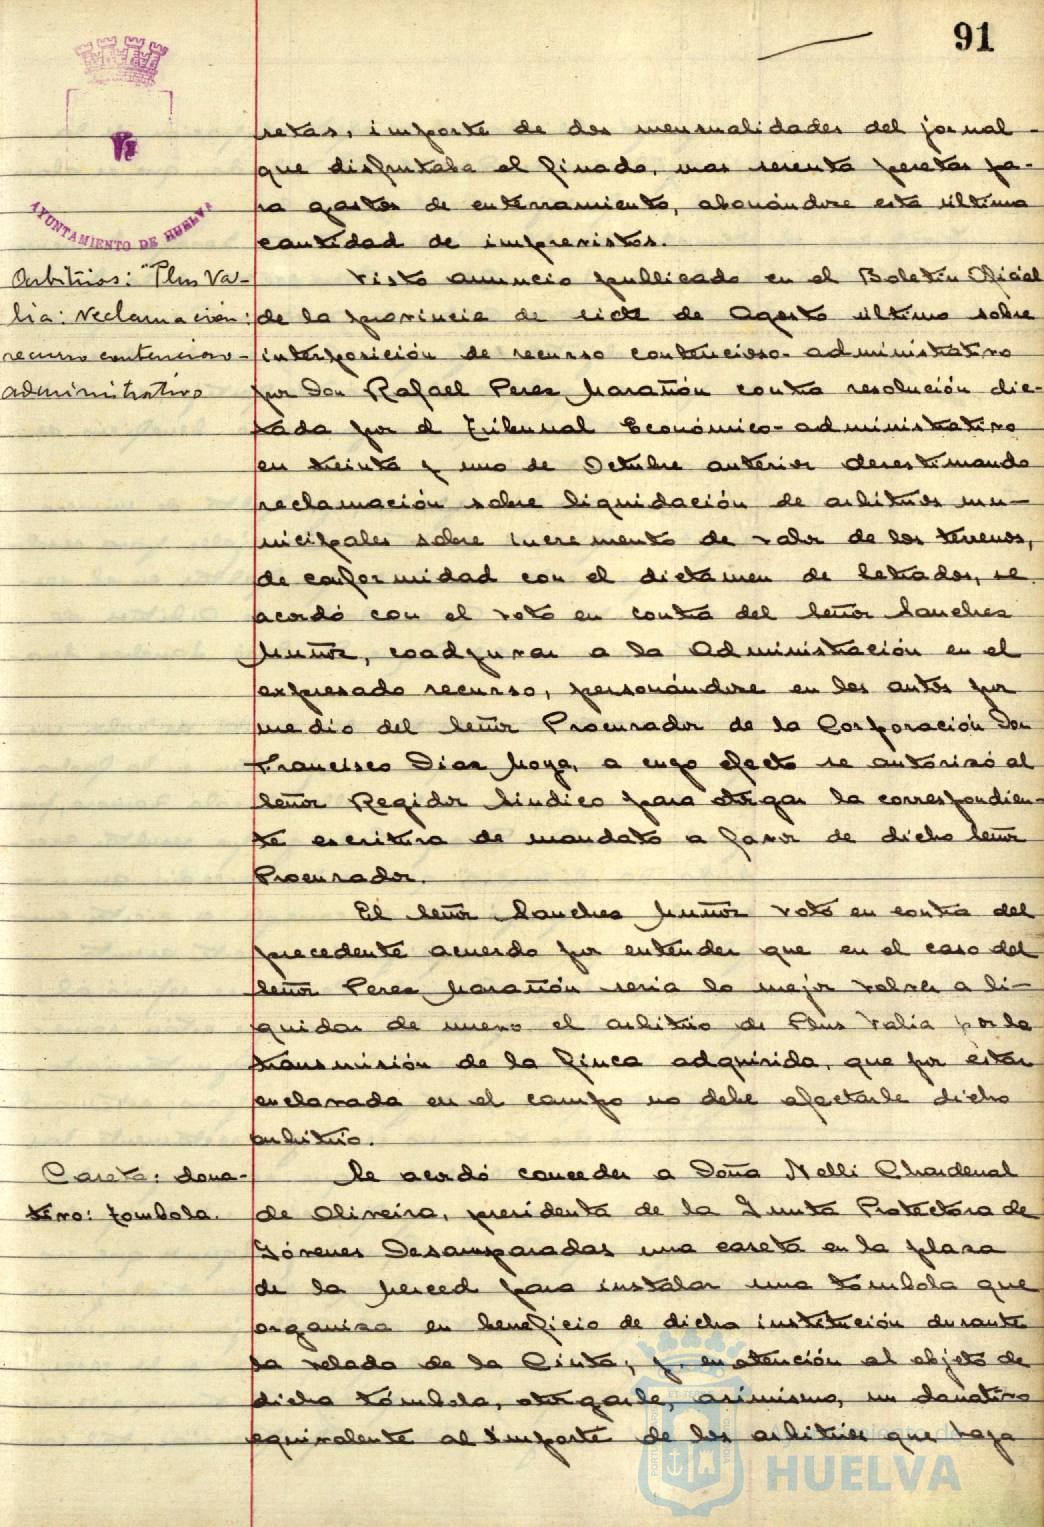 91
AYUNTAMIENTO DE HUELVA
setas, importe de dos mensualidades del jornal
que disfrutaba el finado, mas sesenta pesetas pa-
ra gastos de enterramiento, abonándose esta última
cantidad de imprevistos.
Arbitrios: "Plus Va-
lia: reclamación:
recurso contencioso-
administrativo
Visto anuncio publicado en el Boletin Oficial
de la provincia de siete de Agosto último sobre
interposición de recurso contencioso-administrativo
por Don Rafael Perez Marañón contra resolución dic-
tada por el Tribunal Económico-administrativo
en treinta y uno de Octubre anterior desestimando
reclamación sobre liquidación de arbitrios mu-
nicipales sobre incremento de valor de los terrenos,
de conformidad con el dictamen de letrados, se
acordó con el voto en contra del Señor Sanchez
Muñoz, coadyuvar a la Administración en el
expresado recurso, personándose en los autos por
medio del Señor Procurador de la Corporación Don
Francisco Diaz Moya, a cuyo efecto se autorizó al
Señor Regidor Sindico para otorgar la correspondien-
te escritura de mandato a favor de dicho Señor
Procurador.
El Señor Sanchez Muñoz votó en contra del
precedente acuerdo por entender que en el caso del
Señor Perez Marañón seria lo mejor volver a li-
quidar de nuevo el arbitrio de Plus Valia por la
transmisión de la finca adquirida, que por estar
enclavada en el campo no debe afectarle dicho
arbitrio.
Caseta: dona-
tivo: tombola.
Se acordó conceder a Doña Nelli Chardenal
de Oliveira, presidenta de la Junta Protectora de
Jóvenes Desamparadas una caseta en la plaza
de la Merced para instalar una tómbola que
organiza en beneficio de dicha institución durante
la velada de la Cinta; y, en atención al objeto de
dicha tómbola, otorgarle, asimismo, un donativo
equivalente al importe de los arbitrios que haya
HUELVA